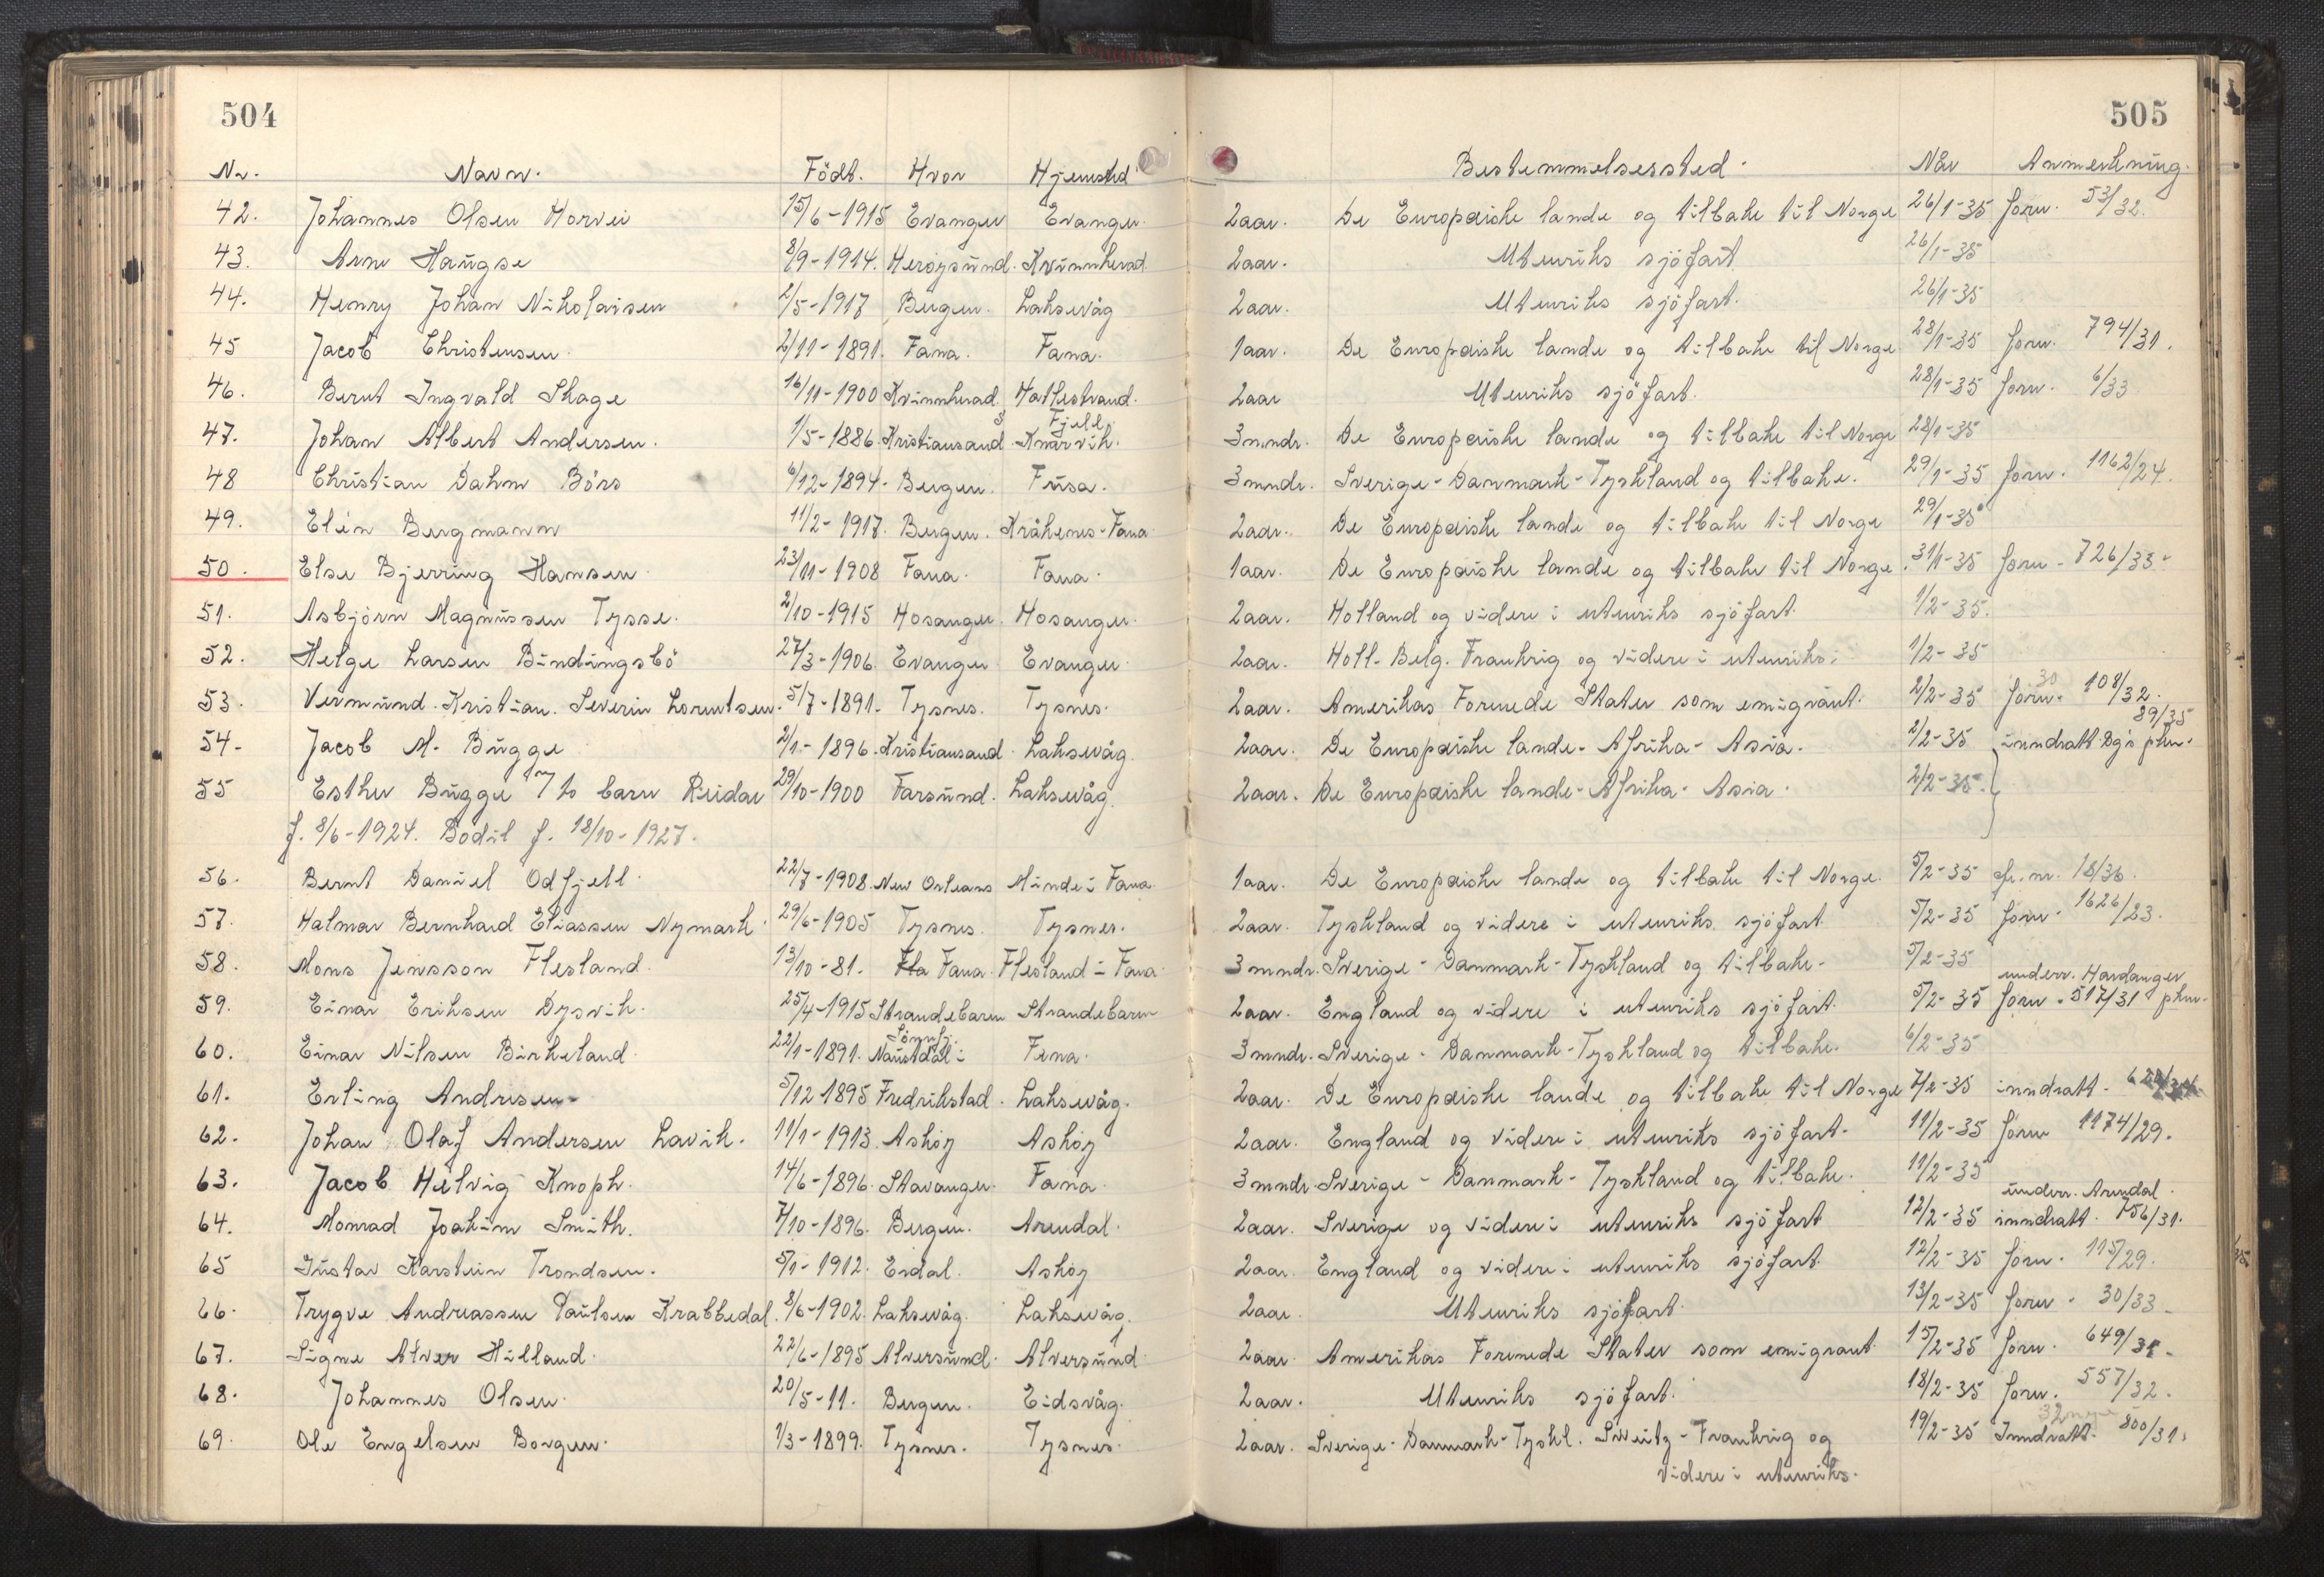 504
Nr. Navn. Födt. Hvor Hjemsted
42. Johannes Olsen Horvei 15/6-1915 Evanger Evanger.
43. Arne Haugse 8/9-1914. Herøysund. Kvinnherad.
44. Henry Johan Nikolaisen 2/5-1917 Bergen. Laksevåg
45 Jacob Christensen. 2/11-1891. Fana. Fana.
46. Bernt Ingvald Skage 16/11-1900 Kvinnherad. Hatlestrand.
47. Johan Albert Andersen. 1/5-1886. Kristiansand S Fjell Knarvik.
48 Christian Dahm Börs 6/12-1894. Bergen. Fusa.
49. Elin Bergmann 11/2-1917. Bergen. Kråkenes-Fana
50. Else Bjerring Hansen 23/11-1908 Fana. Fana.
51. Asbjörn Magnussen Tysse. 2/10-1915 Hosanger. Hosanger.
52. Helge Larsen Bindingsbö 27/3-1906. Evanger Evanger.
53. Vermund. Kristian. Severin Lorentsen. 5/7-1891. Tysnes. Tysnes.
54- Jacob M. Bugge 2/1-1896. Kristiansand. Laksevåg.
55 Esther Bugge m/ to barn Reidar 29/10-1900 Farsund. Laksevåg.
f. 8/6-1924. Bodil f. 18/10-1927.
56. Bernt Daniel Odfjell. 22/7-1908. New Orleans Minde i Fana.
57. Halmar Bernhard Eliassen Nymark. 29/6-1905 Tysnes. Tysnes.
58. Mons Jensson Flesland. 13/10-81. Fla Fana. Flesland i Fana.
59. Einar Eriksen Dysvik. 25/4-1915 Strandebarm Strandebarm
60. Einar Nilsen Birkeland. 22/1-1891. Naustdal i Sönnfj. Fana.
61. Erling Andresen 5/12-1895 Fredrikstad. Laksevåg.
62. Johan Olaf Andersen Lavik. 11/1-1913. Askøy Askøy
63. Jacob Helvig Knoph. 14/6-1896. Stavanger. Fana.
64. Monrad Joakim Smith. 7/10-1896. Bergen. Arendal.
65 Gustav Karstein Trondsen. 5/1-1912. Erdal. Askøy
66. Trygve Andreassen Paulsen Krabbedal. 8/6-1902. Laksevåg. Laksevåg.
67. Signe Alver Hilland. 22/6-1895 Alversund. Alversund.
68. Johannes Olsen. 20/5-11. Bergen. Eidsvåg.
69. Ole Engelsen Borgen. 1/3-1899. Tysnes. Tysnes.
505
Bestemmelsessted. Når Anmerkning.
2 aar. De Europæiske lande og tilbake til Norge 26/1-35 forn. 53/32.
2 aar. Utenriks sjöfart 26/1-35
2 aar. Utenriks sjöfart. 26/1-35
1 aar. De Europæiske lande og tilbake til Norge 28/1-35 forn. 794/31.
2 aar Utenriks sjöfart. 28/1-35 forn. 6/33
3 mndr. De Europæiske lande og tilbake til Norge 28/1-35
3 mndr. Sverige-Danmark-Tyskland og tilbake. 29/1-35 forn. 1162/24.
2 aar. De Europæiske lande og tilbake til Norge 29/1-35
1 aar. De Europæiske lande og tilbake til Norge. 31/1-35 forn- 726/33-
2 aar. Holland og videre i utenriks sjöfart. 1/2-35.
2 aar. Holl- Belg. Frankrig og videre i utenriks. 1/2-35
2 aar. Amerikas Forenede Stater som emigrant. 2/2-35 forn. 30 108/32.
2 aar. De Europæiske lande- Afrika- Asia. 2/2-35 inndratt 89/35
2 aar. De Europæiske lande- Afrika- Asia. 2/2-35.
1 aar. De Europæiske lande og tilbake til Norge. 5/2-35 18/36.
2 aar. Tyskland og videre i utenriks sjöfart. 5/2-35 forn. 1626/23.
3 mndr. Sverige-Danmark-Tyskland og tilbake- 5/2-35
underr. Hardanger
2 aar. England og videre i utenriks sjöfart. 5/2-35 forn. 517/31 pkm.
3 mndr. Sverige- Danmark-Tyskland og tilbake. 6/2-35
2 aar. De Europæiske lande og tilbake til Norge 7/2-35 inndratt-
2 aar. England og videre i utenriks sjöfart. 11/2-35 forn 1174/29.
3 mndr Sverige- Danmark- Tyskland og tilbake. 11/2-35
underr. Arendal.
2 aar. Sverige og videre i utenriks sjöfart 12/2-35 inndratt. 156/31.
2 aar. England og videre i utenriks sjöfart. 12/2-35 forn. 115/29.
2 aar. Utenriks sjöfart. 13/2-35 forn- 30/33-
2 aar. Amerikas Forenede Stater som emigrant 15/2-35 forn. 649/31-
2 aar. Utenriks sjöfart. 18/2-35 forn. 557/32.
2 aar. Sverige-Danmark-Tyskl. Sweitz-Frankrig og 19/2-35 Inndratt. 800/31.
videre i utenriks.